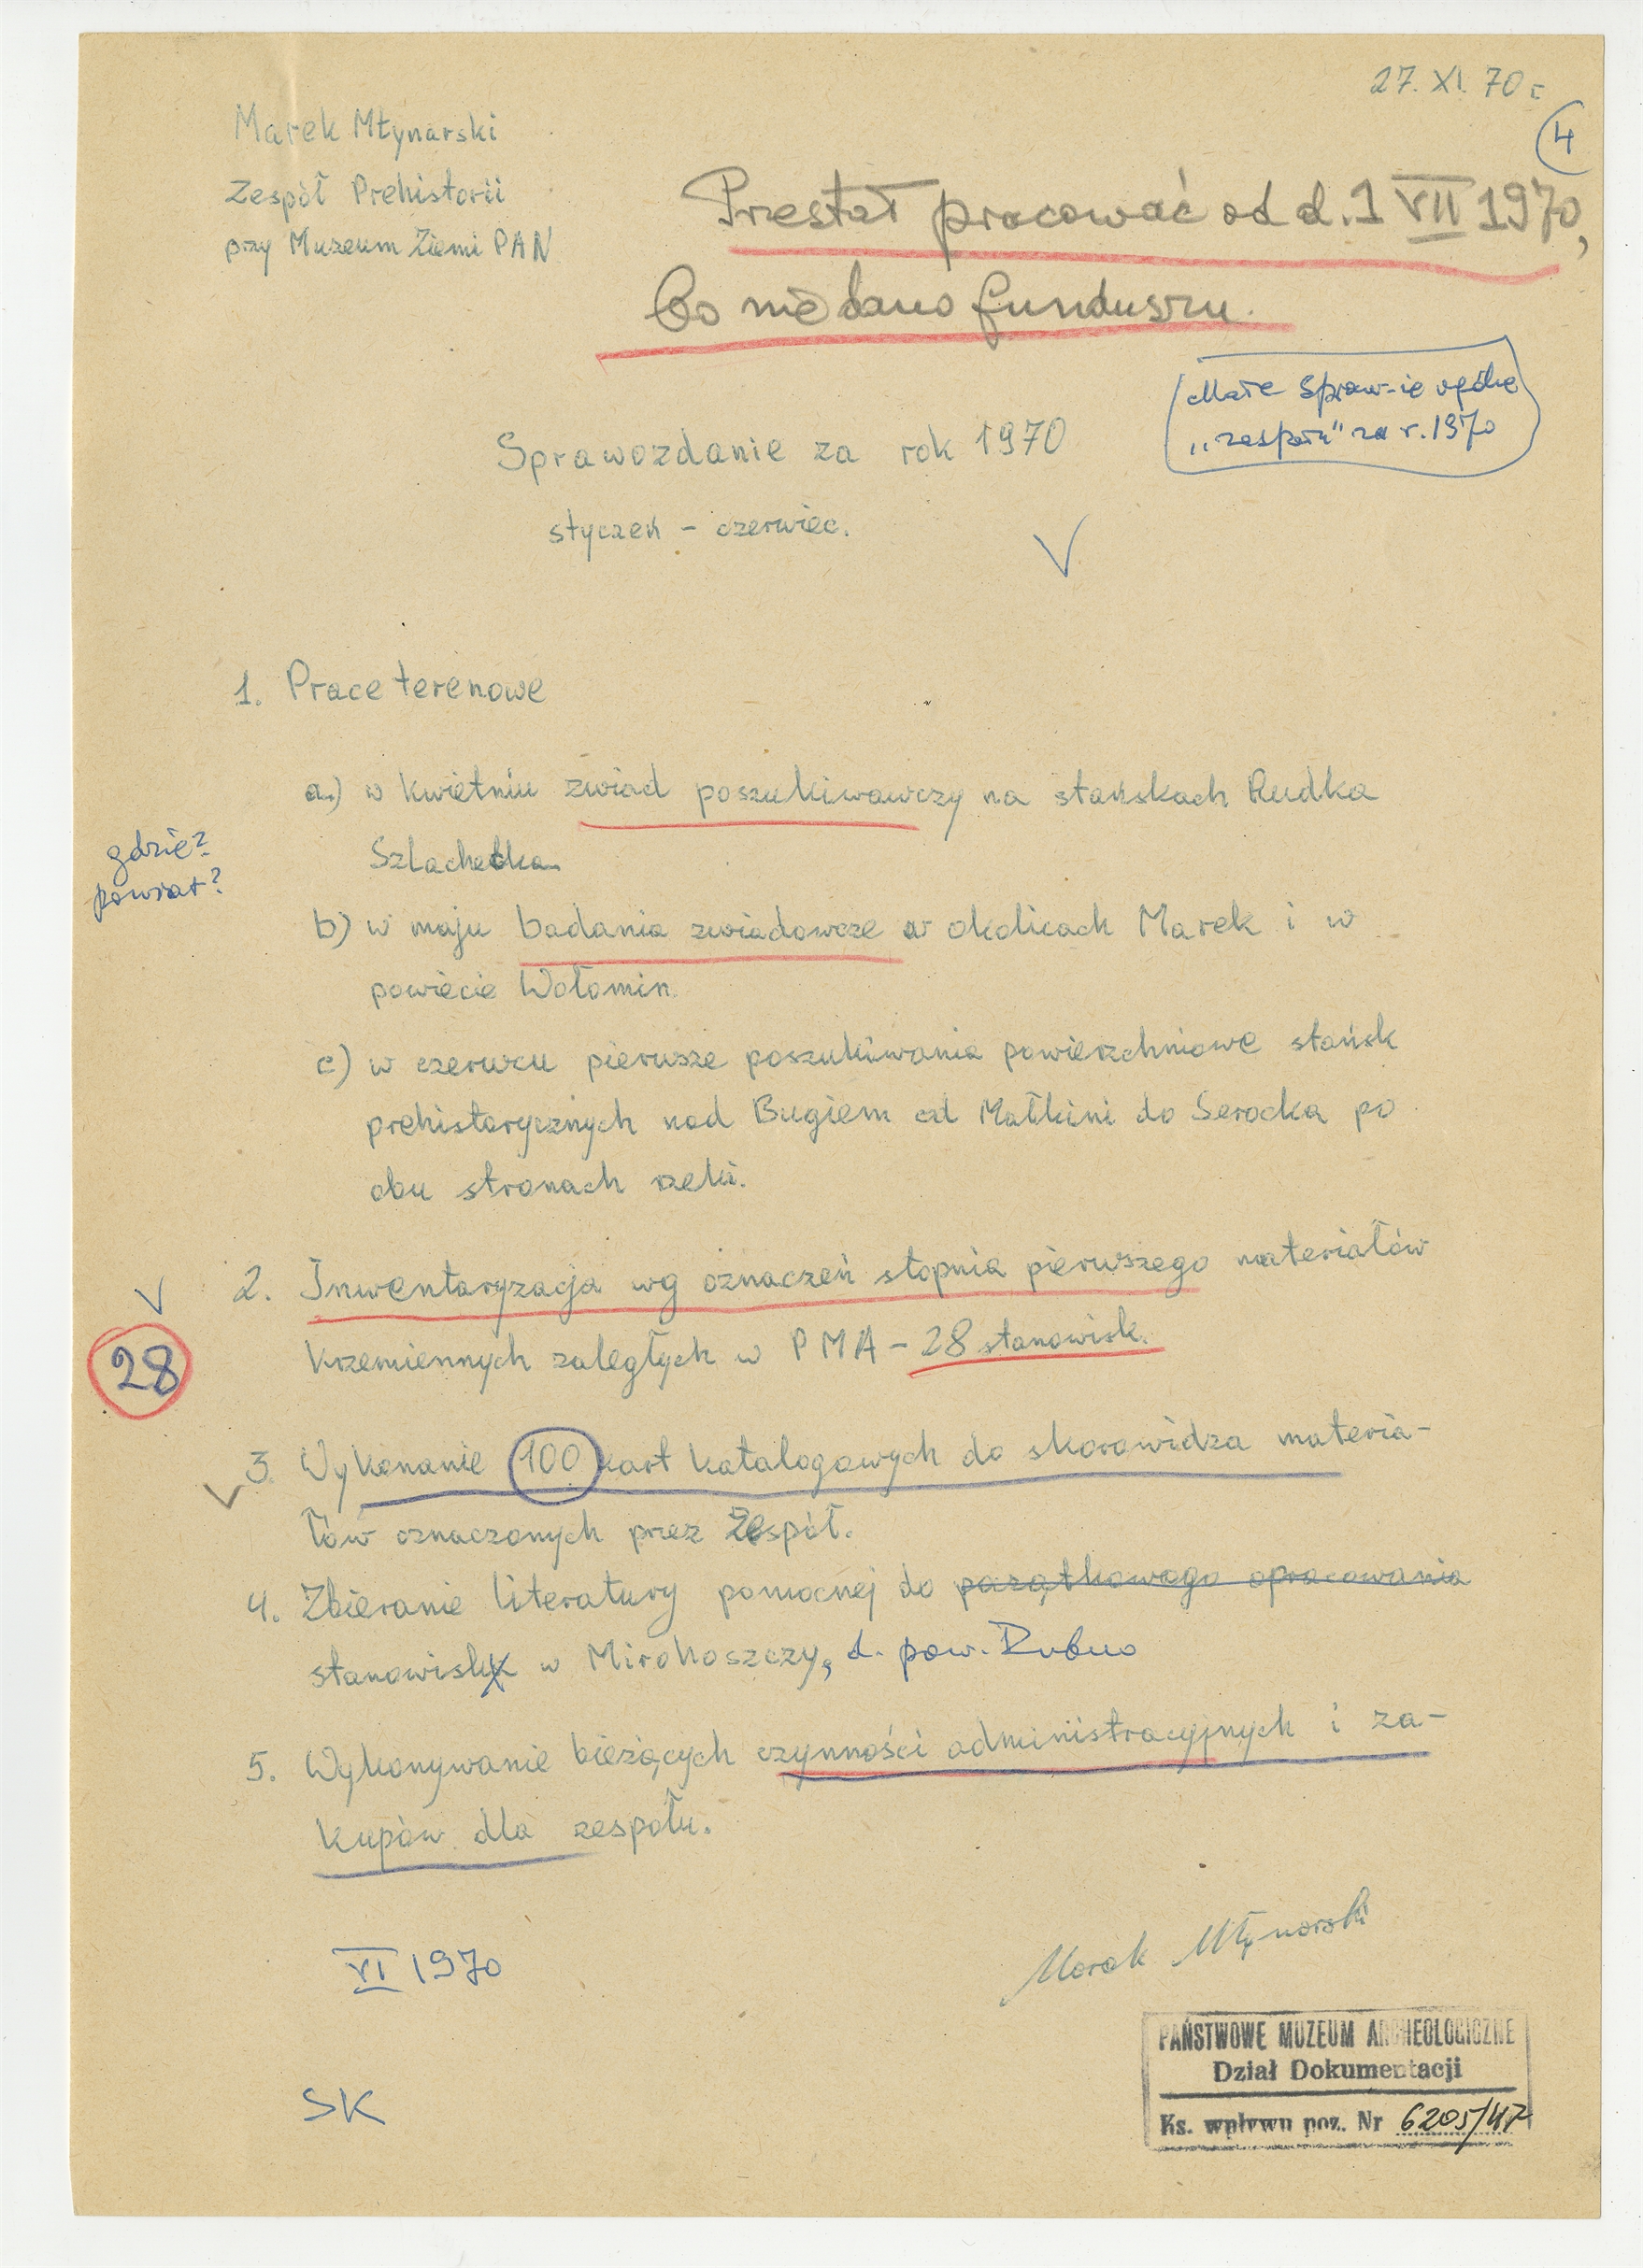 27. XI. 70 r
4
Marek Młynarski
Zespół Prehistorii
przy Muzeum Ziemi PAN
Przestał pracować od d. 1 VII 1970,
bo nie dano funduszu.
Małe spraw-ie
"zespołu" za r. 1970
Sprawozdanie za rok 1970
styczeń - czerwiec.
1. Prace terenowe
a) w kwietniu zwiad poszukiwawczy na stańskach Rudka
Szlachecka
gdzie?
powiat?
b) w maju badania zwiadowcze w okolicach Marek i w
powiecie Wołomin.
c) w czerwcu pierwsze poszukiwania powierzchniowe stańsk
prehistorycznych nad Bugiem od Małkini do Serocka po
obu stronach rzeki.
2. Inwentaryzacja wg oznaczeń stopnia pierwszego materiałów
krzemiennych zaległych w PMA - 28 stanowisk.
28
3. Wykonanie 100 kart katalogowych do skorowidza materia-
łów oznaczonych przez Zespół.
4. Zbieranie literatury pomocnej do początkowego opracowania
stanowisk w Mirohoszczy, d. pow. Dubno
5. Wykonywanie bieżących czynności administracyjnych i za-
kupów dla zespołu.
VI 1970
Marek Młynarski
SK
PAŃSTWOWE MUZEUM ARCHEOLOGICZNE
Dział Dokumentacji
Ks. wpływu poz. Nr 6205/47